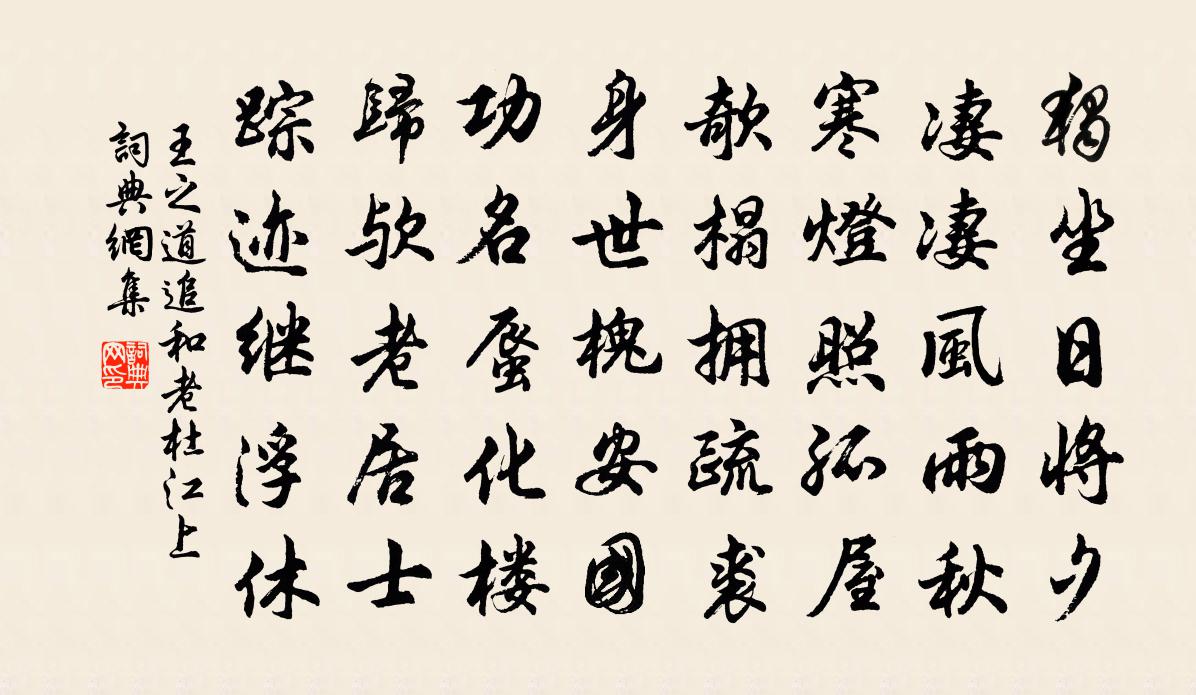 獨坐日将夕
凄凄風雨秋
寒燈照孤屋
欹榻拥疏裘
身世槐安國
功名蜃化楼
歸欤老居士
踪迹继浮休
王之道追和老杜江上
詞典網集
詞典网印